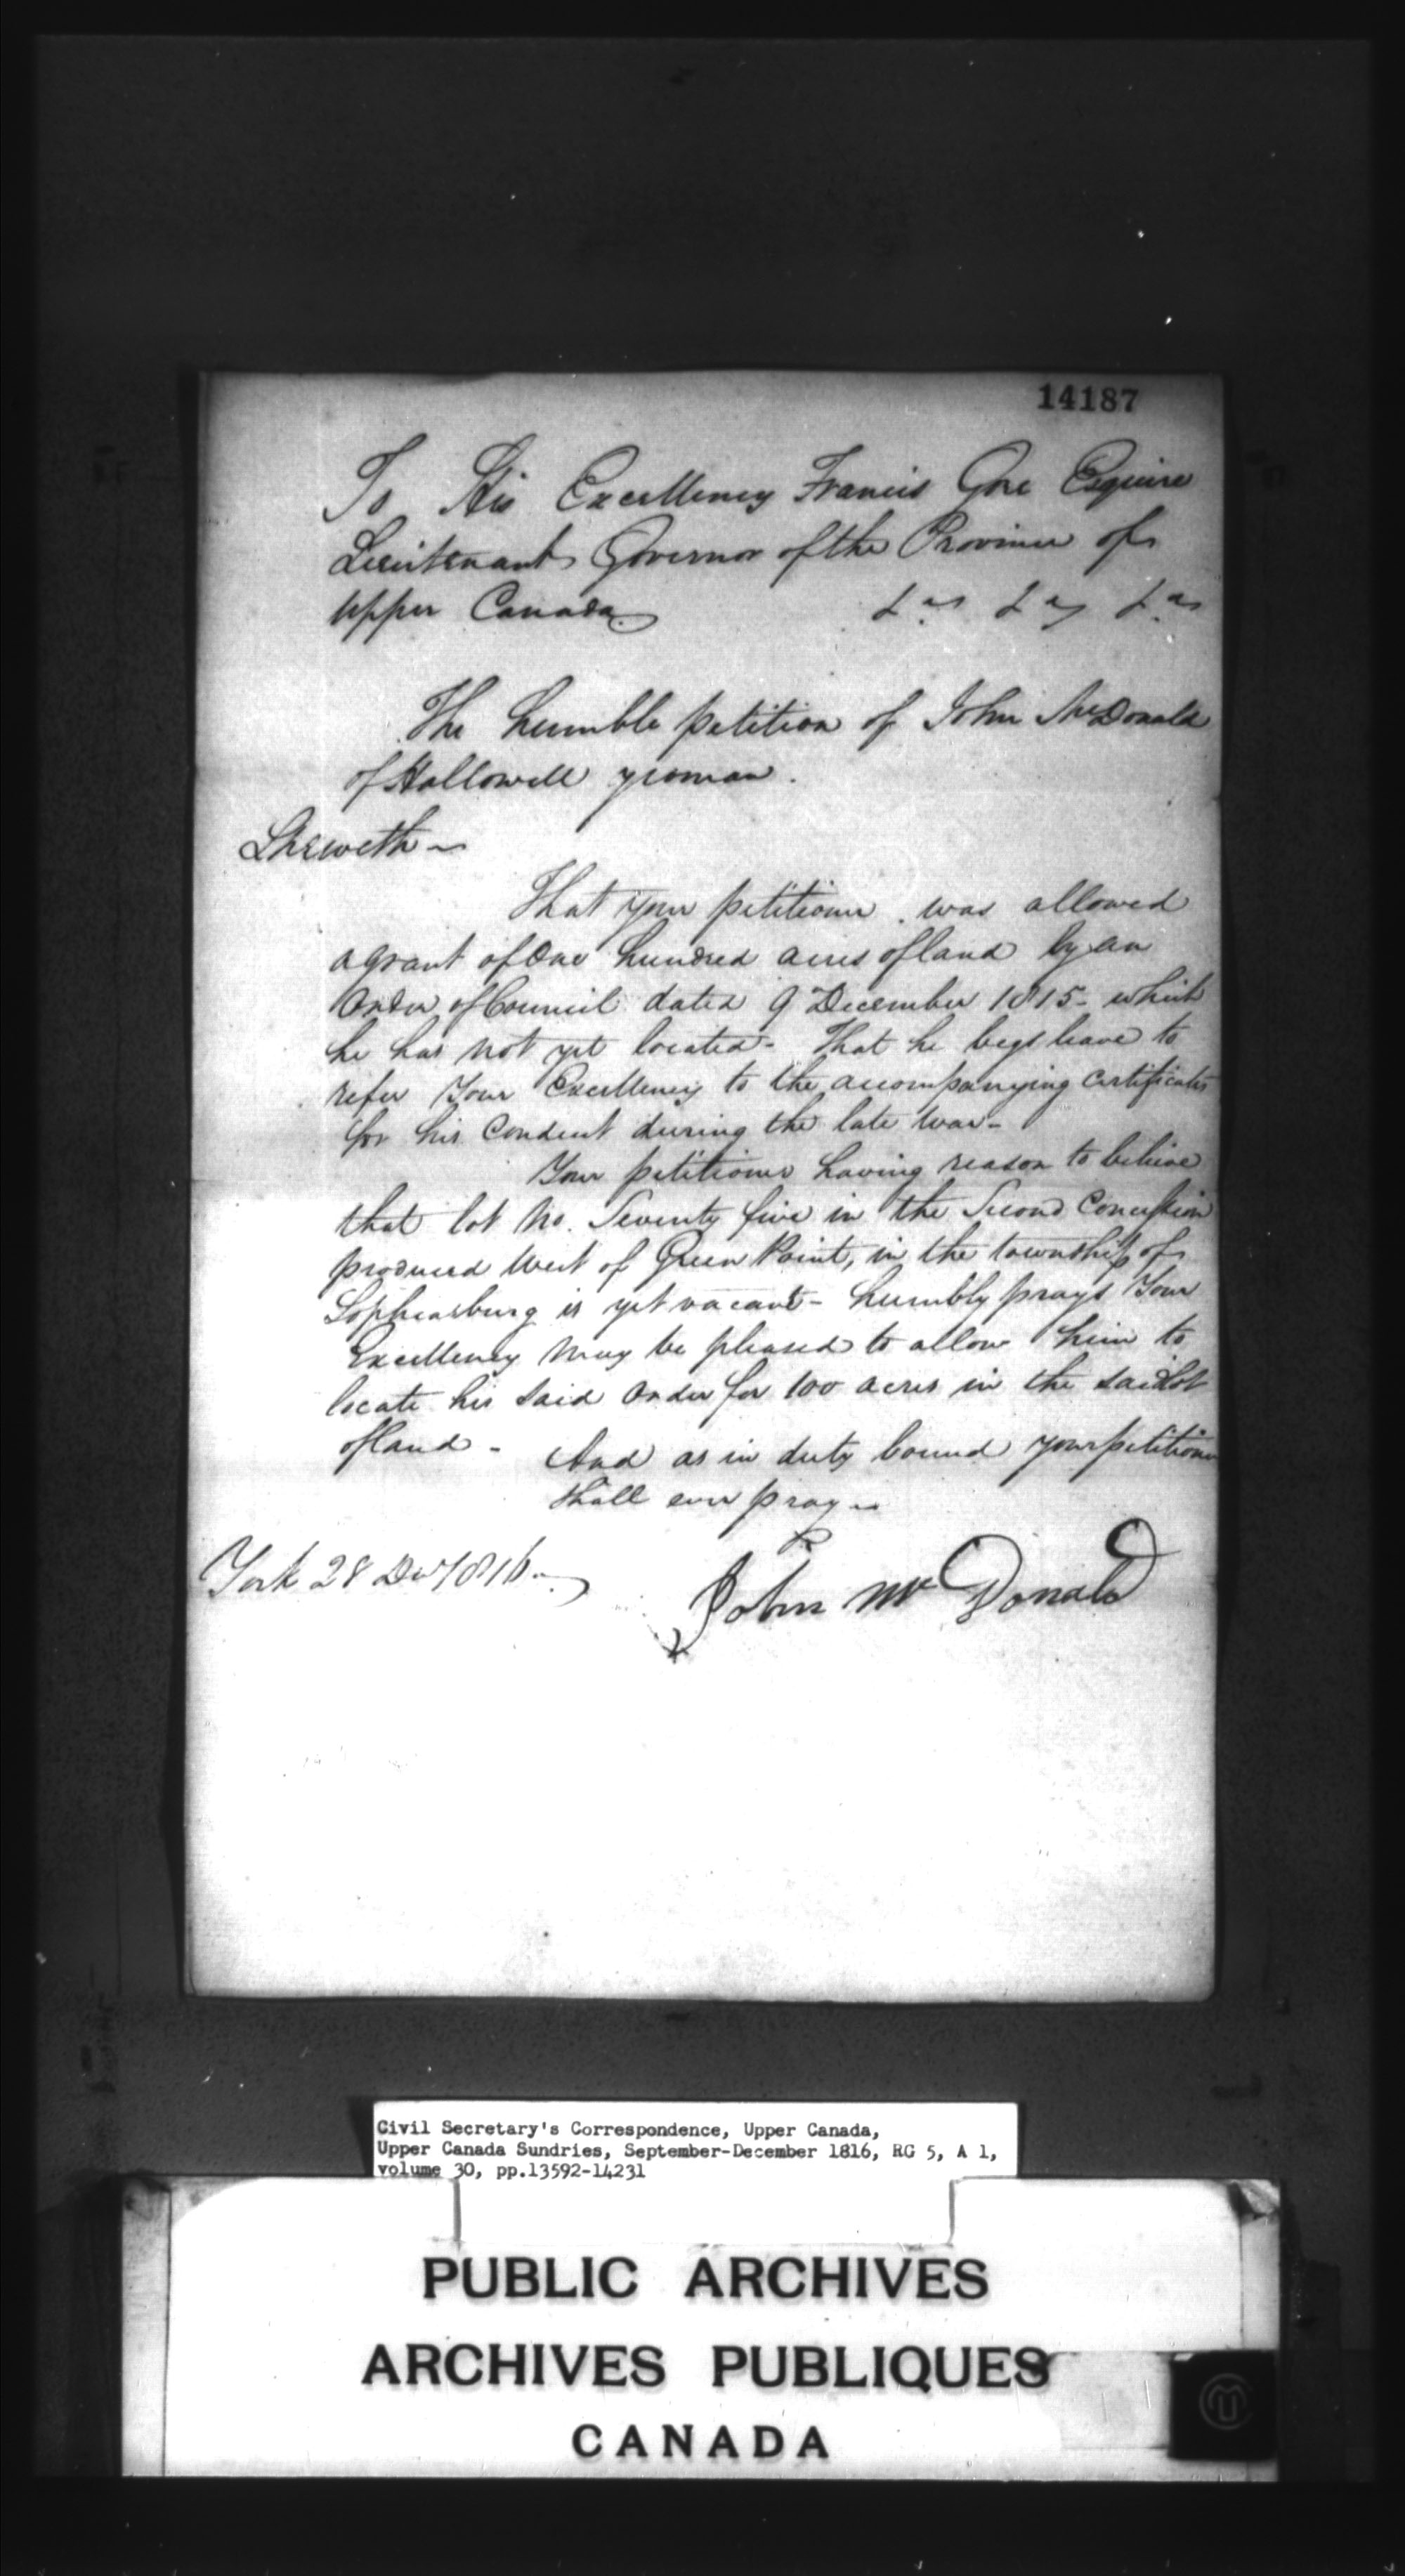 14187
To His Excellency Francis Gore Esquire
Lieutenant Governor of the Province of
Upper Canada &ca &ca &ca
The humble petition of John McDonald
of Hallowell yeoman.
Sheweth ~
That your petitioner was allowed
a grant of One hundred acres of land by an
Order of Council dated 9 December 1815 - which
he has not yet located - That he begs leave to
refer Your Excellency to the accompanying certificates
for his Conduct during the late war -
Your petitioner having reason to believe
that lot No. Seventy five in the Second Concession
produced West of Green Point, in the township of
Sophiasburg is yet vacant - humbly prays Your
Excellency may be pleased to allow him to
locate his said Order for 100 acres in the said lot
of land - And as in duty bound your petitioner
shall ever pray ~
York 28 Decr 1816 -
John Mc Donald
Civil Secretary's Correspondence, Upper Canada,
Upper Canada Sundries, September-December 1816, RG 5, A 1,
volume 30, pp.13592-14231
PUBLIC ARCHIVES
ARCHIVES PUBLIQUES
CANADA